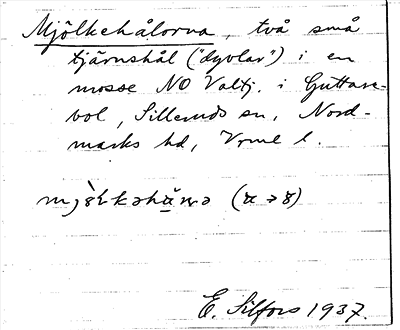 Mjölkehålorna, två små
tjärnshål ("dyvlar") i en
mosse NO Valtj. i Guttane-
bol, Silleruds sn, Nord-
marks hd, Vrml l.
E. Silfors 1937.